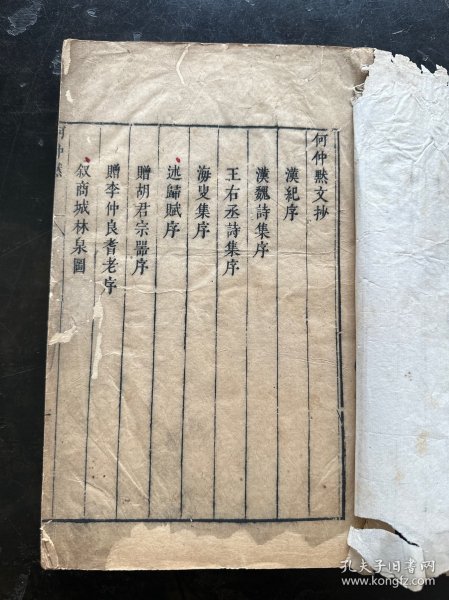 何仲默文抄
漢紀序
漢魏詩集序
王右丞詩集序
海叟集序
述歸賦序
贈胡君宗器序
贈李仲良耆老序
叙商城林泉圖
何仲默
孔夫子旧书网
www.kongfz.com